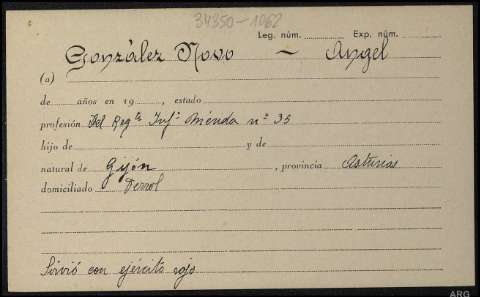 34350-1062
Leg. núm. Exp. núm.
González Novo ~ Angel
(a)
de años en 19 , estado
profesión Del Regto Infª Mérida nº 35
hijo de y de
natural de Gijón , provincia Asturias
domiciliado Ferrol
Sirvió con ejército rojo
ARG